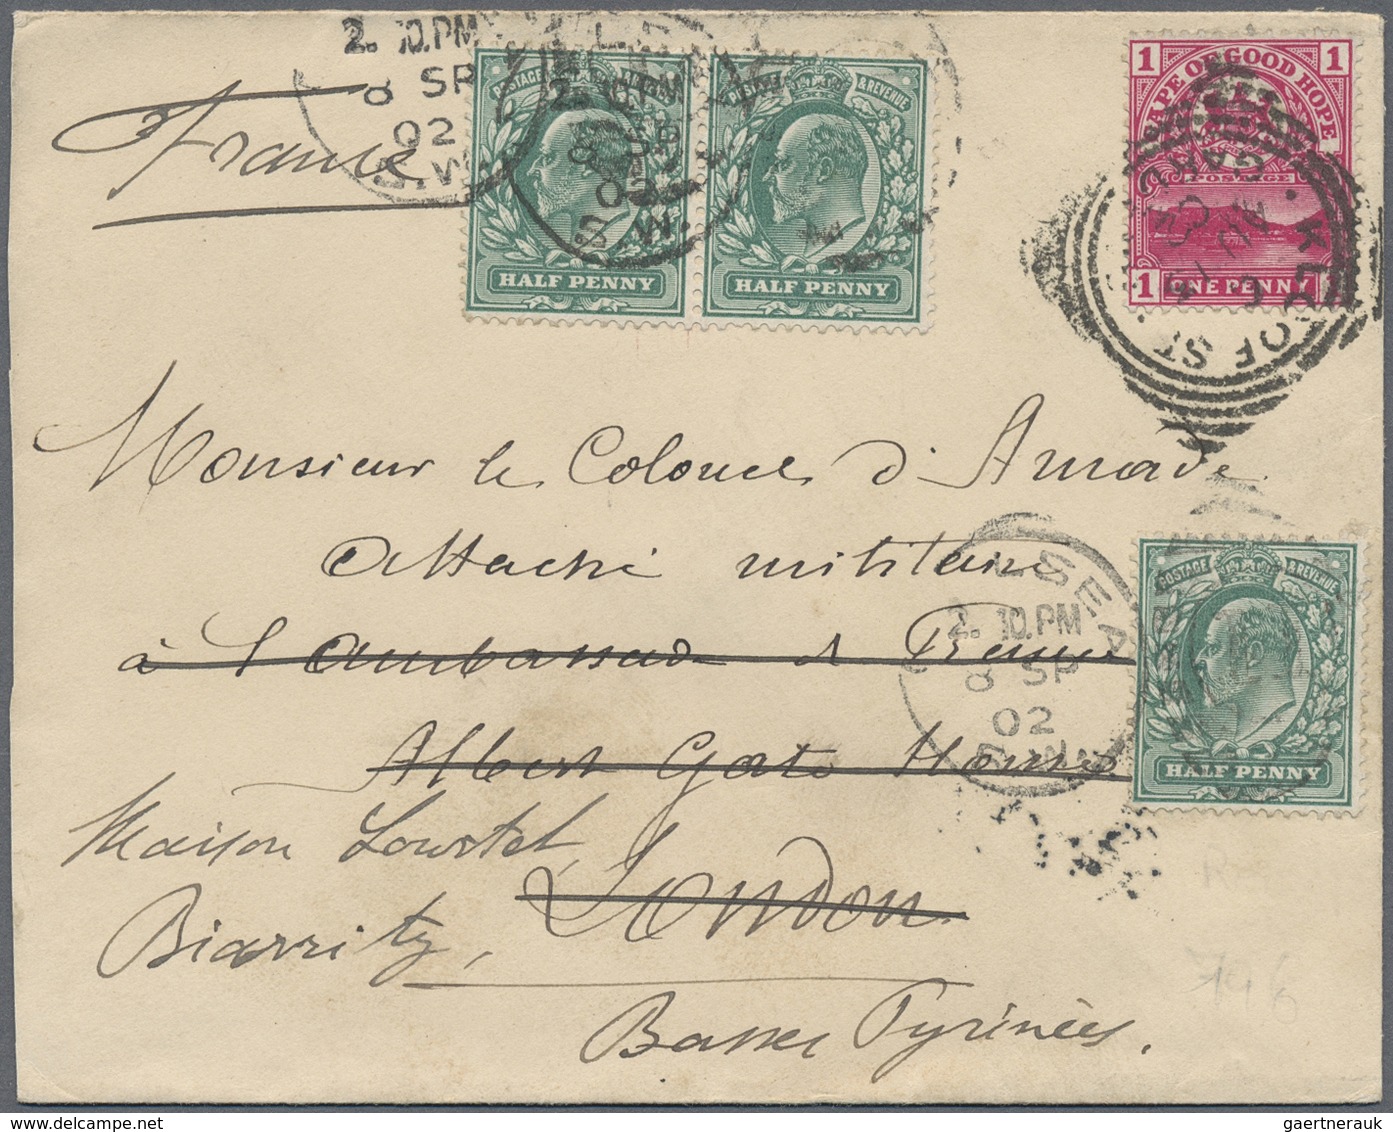 2. 10.PM
8 SP
02
S.W.
France
POSTAGE & REVENUE
HALF PENNY
POSTAGE & REVENUE
HALF PENNY
2. 10.PM
8 SP
02
S.W.
1 1
CAPE OF GOOD HOPE
POSTAGE
1 ONE PENNY 1
OF ST.
Monsieur le Colonel d'Amade
Attaché militaire
à l'Ambassade de France
Albert Gate House
London
Maison Lourtel,
Biarritz,
Basses Pyrinées.
LSEA
2. 10.PM
8 SP
02
S.W.
POSTAGE & REVENUE
HALF PENNY
gaertnerauk